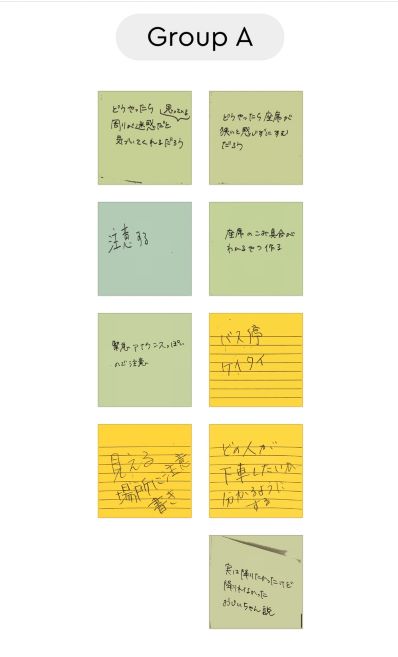 Group A
どうやったら 思っている
周りが迷惑だと
気づいてくれるだろう
どうやったら座席が
狭いと感じずにすむ
だろう
注意する
座席のこみ具合が
わかるやつ作る
緊急アナウンスっぽい
ので注意
バス停
ケイタイ
見える
場所に注意
書き
どの人が
下車したいか
分かるように
する
実は降りたかったけど
降りれなかった
おじいちゃん説